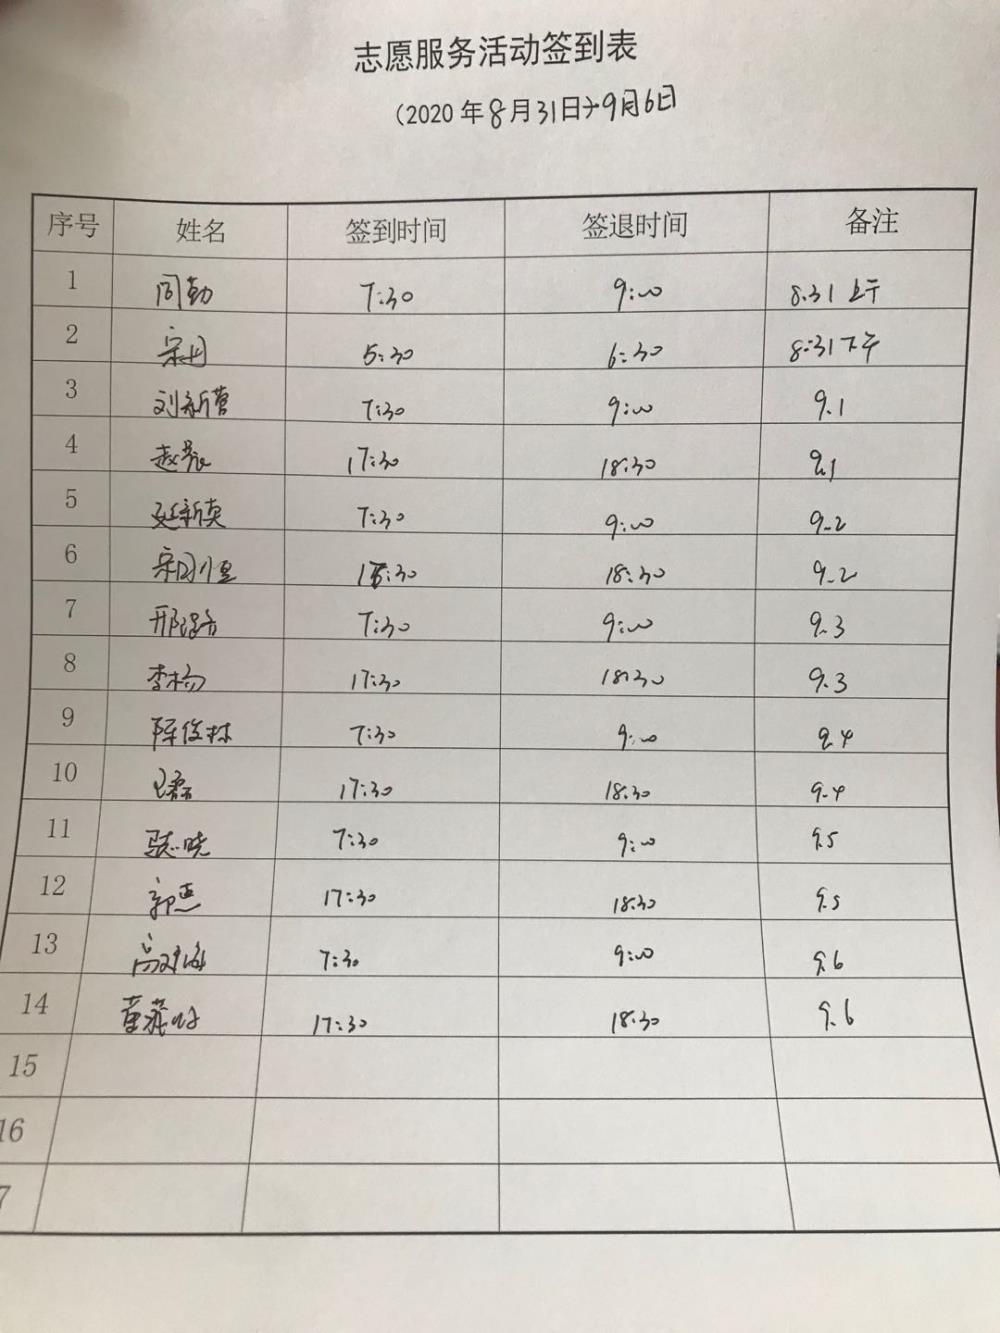 志愿服务活动签到表
(2020年8月31日→9月6日
序号 姓名 签到时间 签退时间 备注
1 同勤 7:30 9:00 8.31上午
2 宋丹 5:30 6:30 8:31下午
3 刘新营 7:30 9:00 9.1
4 赵 17:30 18:30 9.1
5 延新英 7:30 9:00 9.2
6 宋国恒 18:30 9.2
7 邢 7:30 9:00 9.3
8 李杨 17:30 18:30 9.3
9 陈俊林 7:30 9:00 9.4
10 17:30 18:30 9.4
11 晓 7:30 9:00 9.5
12 郭燕 17:30 18:30 9.5
13 高 7:30 9:00 9.6
14 董 17:30 18:30 9.6
15
16
7